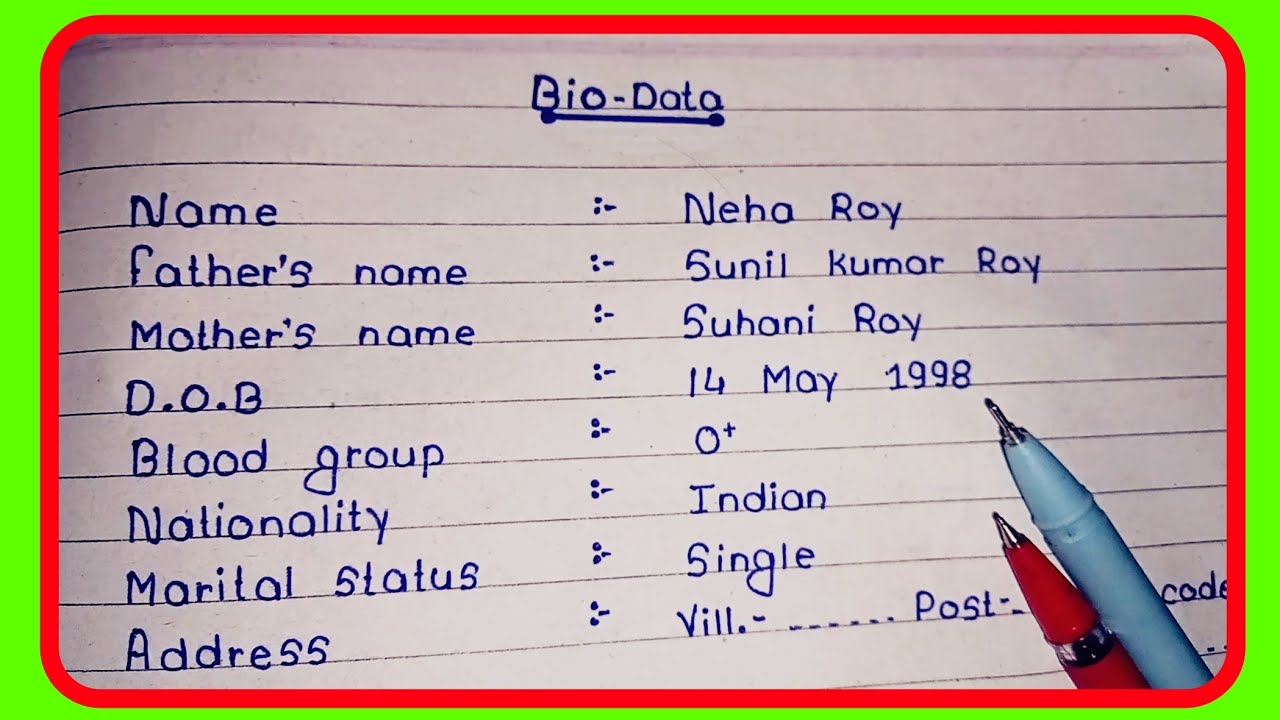 Bio-Data
Name :- Neha Roy
Father's name :- Sunil Kumar Roy
Mother's name :- Suhani Roy
D.O.B :- 14 May 1998
Blood group :- O+
Nationality :- Indian
Marital Status :- Single
Address :- Vill.- ....... Post-. code